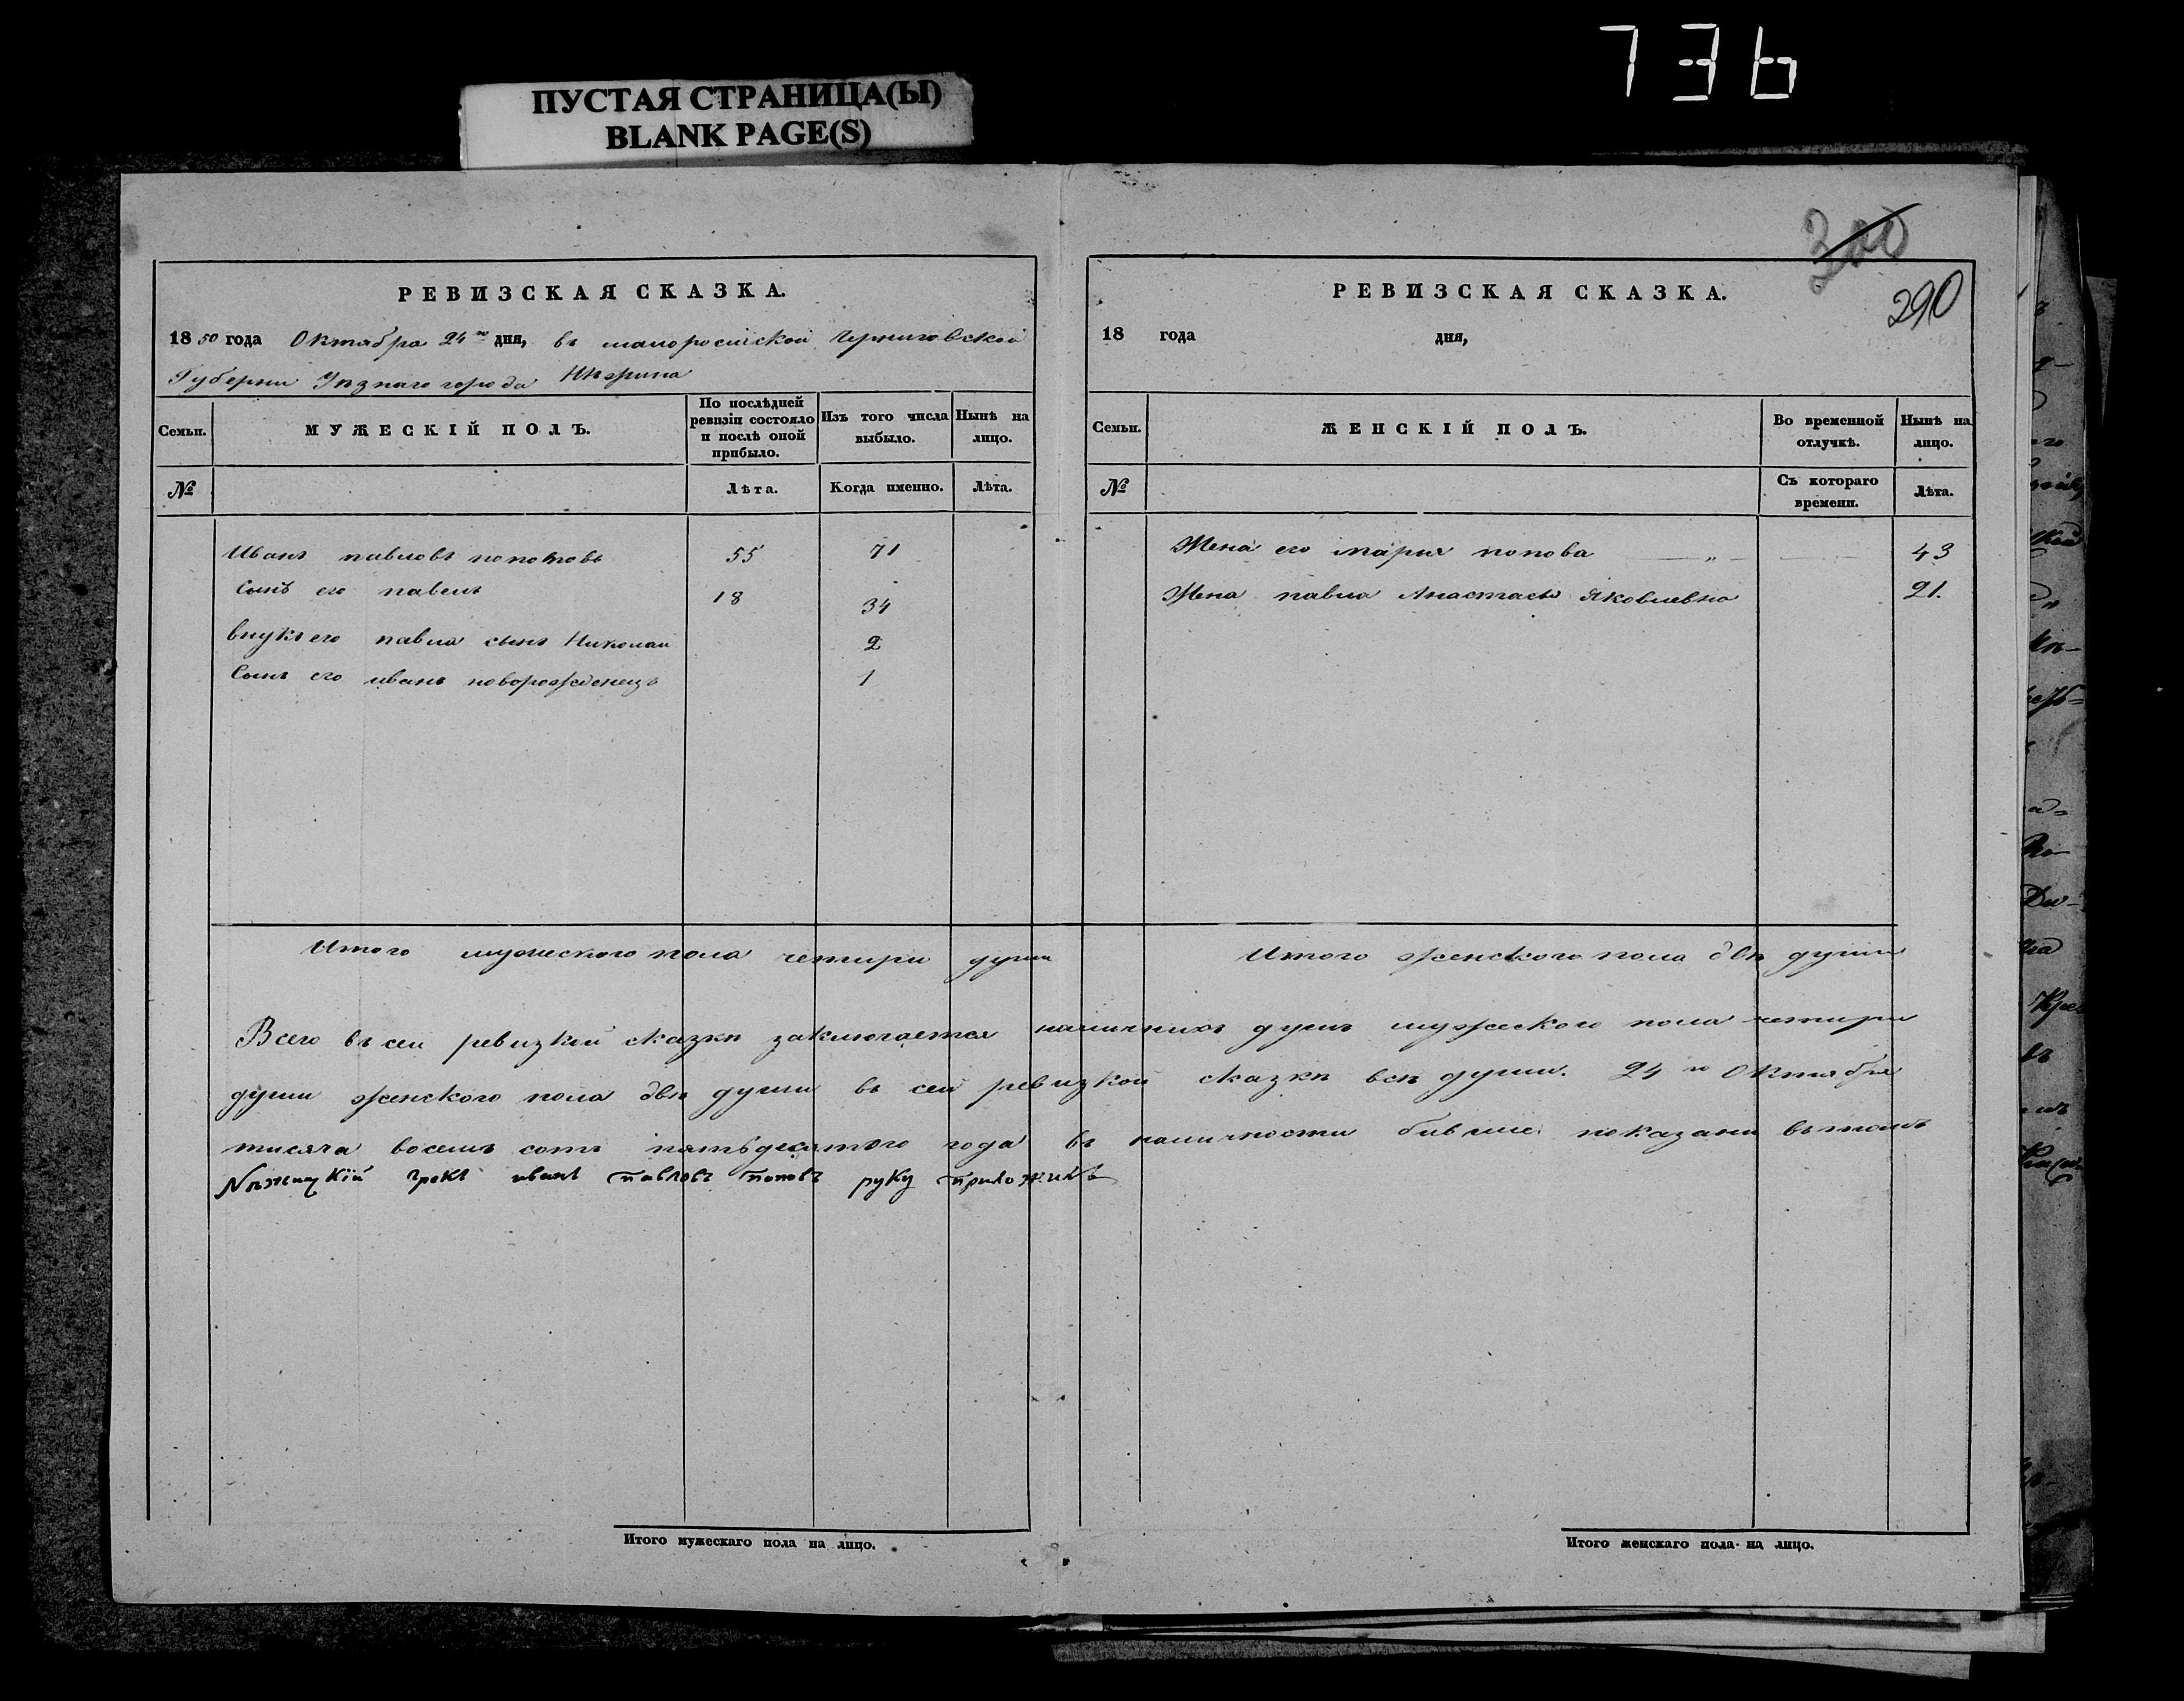 736
ПУСТАЯ СТРАНИЦА(Ы)
BLANK PAGE(S)
300
290
РЕВИЗСКАЯ СКАЗКА.
1850 года Октября 24го дня, въ малоросийской Черниговской
Губерни Уѣзнаго города Нѣжина
Семьи. МУЖЕСКІЙ ПОЛЪ. По послѣдней ревизіи состояло и послѣ оной прибыло. Изъ того числа выбыло. Нынѣ на лицо.
№ Лѣта. Когда именно. Лѣта.
Иванъ павловъ попотовъ 55 71
Сынъ его павелъ 18 34
внукъ его павла сынъ Николаи 2
Сынъ его иванъ новорожденецъ 1
Итого мужеского пола четири души
РЕВИЗСКАЯ СКАЗКА.
18 года дня,
Семьи. ЖЕНСКІЙ ПОЛЪ. Во временной отлучкѣ. Нынѣ на лицо.
№ Съ котораго времени. Лѣта.
Жена его мария попова 43
Жена павла Анастасия Яковлевна 21.
Итого женского пола двѣ души
Всего въ сеи ревизкой сказки заключается наличнихъ душъ мужеского пола четири
души женского пола двѣ души въ сей ревизкой сказкѣ всѣ души. 24го Октября
тисяча восемь сотъ пятьдесятого года въ наличности бившие показани въ томъ
Nѣжинскій грекъ иванъ павловъ поповъ руку приложилъ
Итого мужескаго пола на лицо.
Итого женскаго пола на лицо.